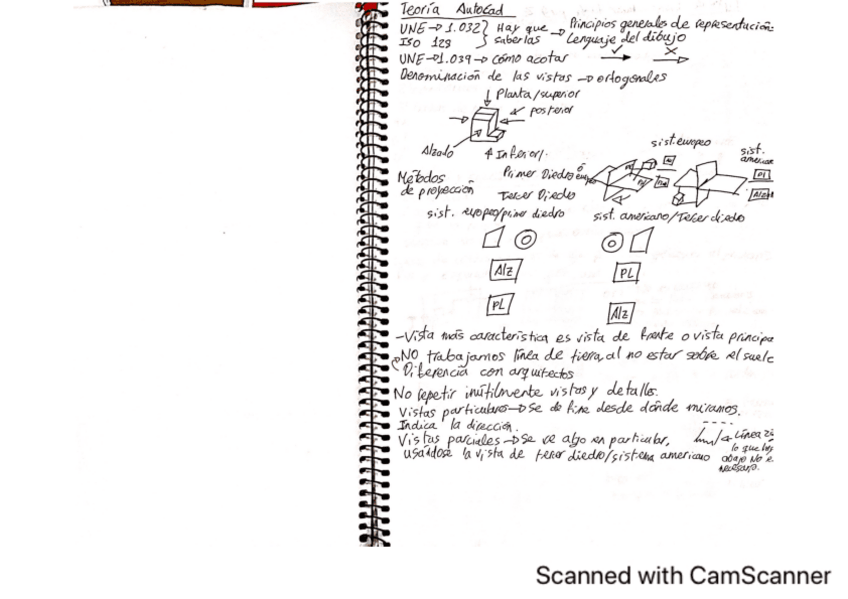 Teoría AutoCad
UNE → 1.032 } Hay que → Principios generales de representación
ISO 128 } saberlas Lenguaje del dibujo
UNE → 1.039 → cómo acotar ✓ X
Denominación de las vistas → ortogonales
Planta/superior
posterior
Alzado
Inferior
sist. europeo
sist.
Métodos
de proyección
Primer Diedro ó
Tercer Diedro
PL
Alz
sist. europeo/primer diedro sist. americano/Tercer diedro
Alz PL
PL Alz
-Vista más característica es vista de frente o vista principa
NO trabajamos línea de tierra, al no estar sobre el suelo
Diferencia con arquitectos
No repetir inútilmente vistas y detalles.
Vistas particulares → Se define desde dónde miramos.
Indica la dirección.
Vistas parciales → Se ve algo en particular,
usándose la vista de tercer diedro/sistema americano
Línea
lo que hay
abajo No e
necesario.
Scanned with CamScanner